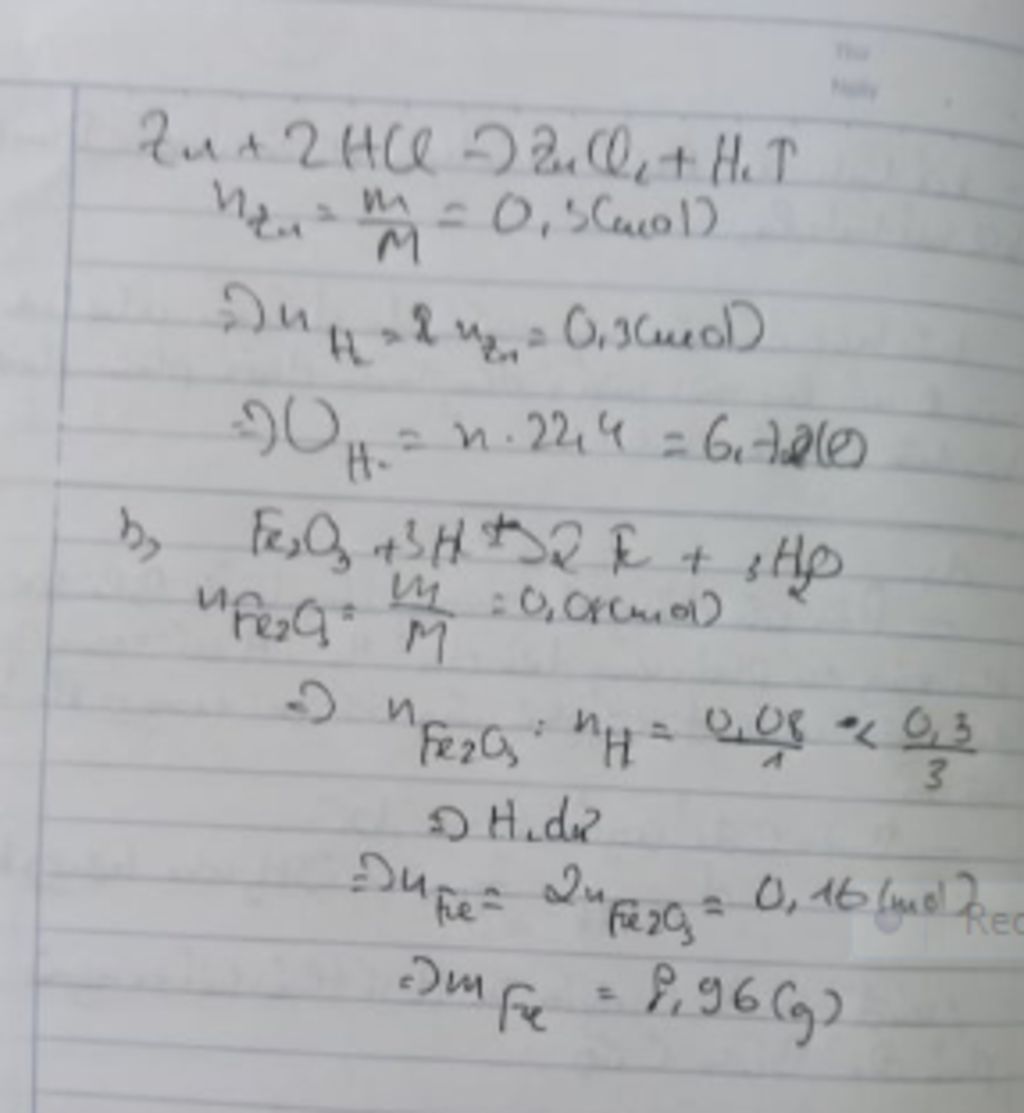 Thứ
Ngày
Zn + 2HCl => ZnCl₂ + H₂↑
n Zn = m/M = 0,3(mol)
=> n H₂ = n Zn = 0,3(mol)
=> V H₂ = n . 22,4 = 6,72(l)
b, Fe₂O₃ + 3H₂ → 2Fe + 3H₂O
n Fe₂O₃ = m/M = 0,08(mol)
=> n Fe₂O₃ : n H = 0,08/1 < 0,3/3
=> H₂ dư
=> n Fe = 2n Fe₂O₃ = 0,16(mol)
Rec
=> m Fe = 8,96(g)